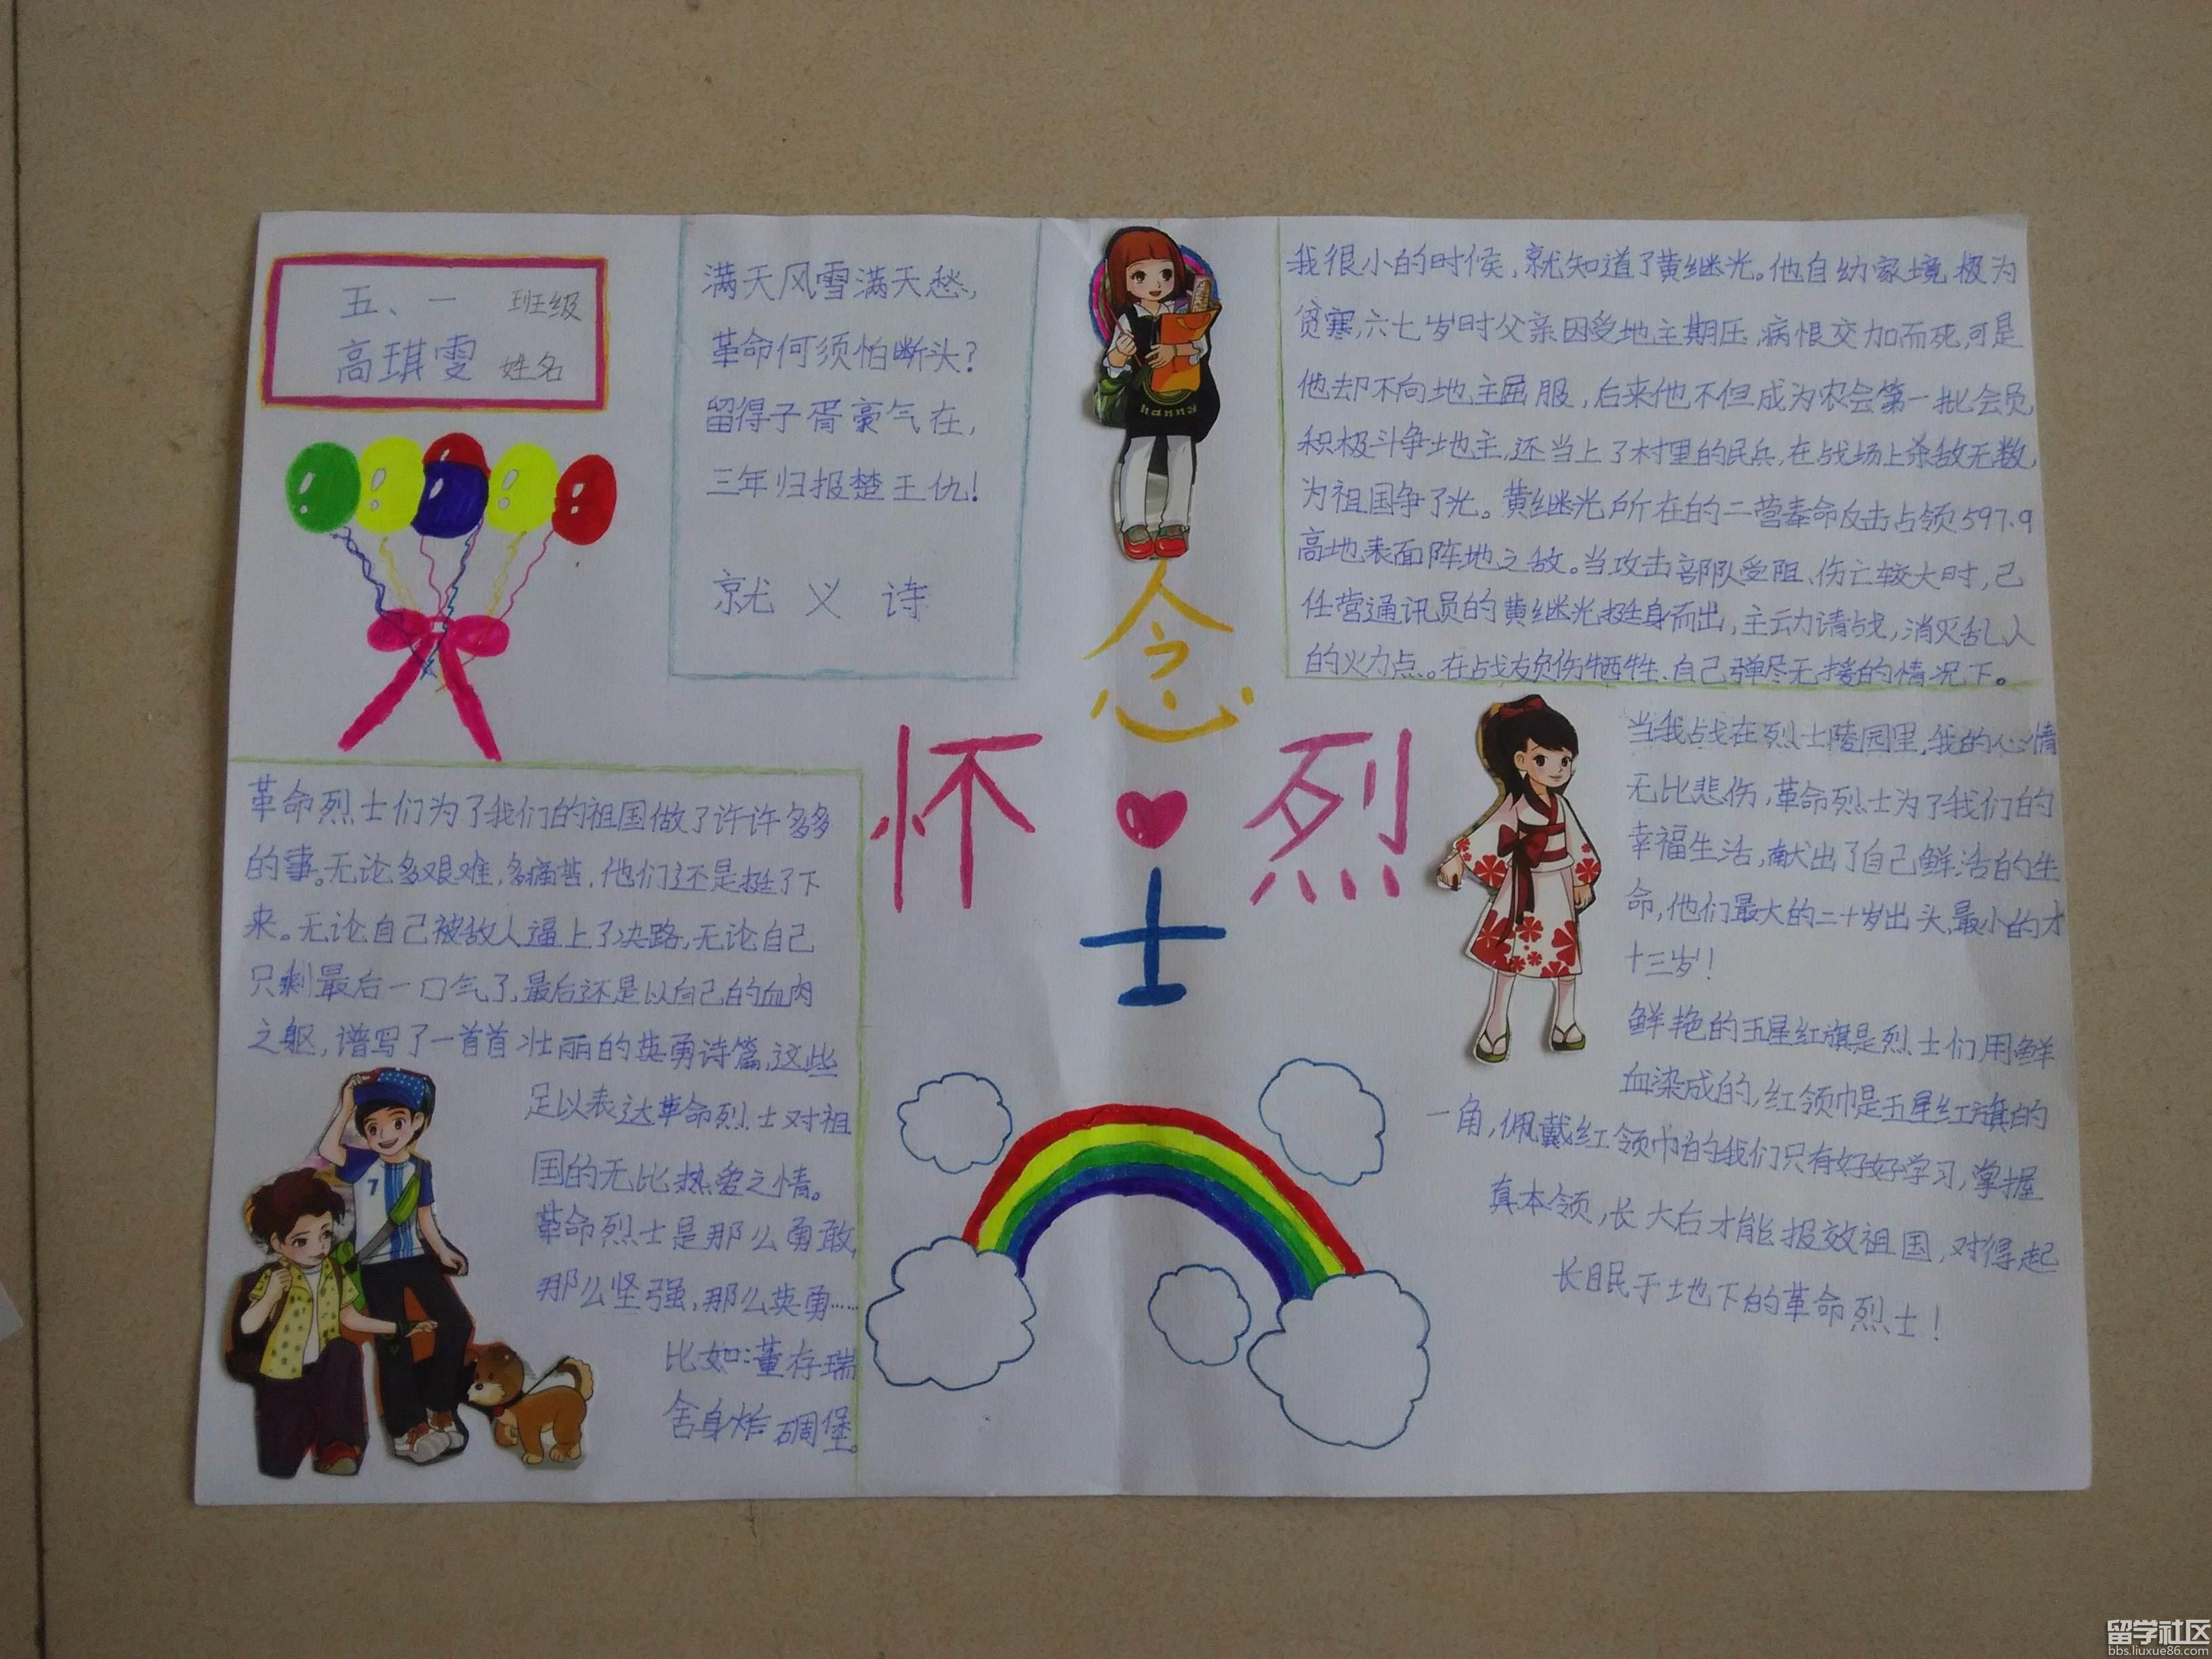 五、一 班级
高琪雯 姓名
满天风雪满天愁,
革命何须怕断头?
留得子胥豪气在,
三年归报楚王仇!
就义诗
hanna
我很小的时候,就知道了黄继光。他自幼家境极为
贫寒,六七岁时父亲因受地主期压,病恨交加而死,可是
他却不向地主屈服,后来他不但成为农会第一批会员
积极斗争地主,还当上了村里的民兵,在战场上杀敌无数,
为祖国争了光。黄继光所在的二营奉命反击占领597.9
高地表面阵地之敌。当攻击部队受阻、伤亡较大时,已
任营通讯员的黄继光挺身而出,主动请战,消灭乱人
的火力点。在战友负伤牺牲、自己弹尽无援的情况下。
念
怀 烈
士
革命烈士们为了我们的祖国做了许许多多
的事。无论多艰难,多痛苦,他们还是挺了下
来。无论自己被敌人逼上了决路,无论自己
只剩最后一口气了,最后还是以自己的血肉
之躯,谱写了一首首壮丽的英勇诗篇,这些
足以表达革命烈士对祖
国的无比热爱之情。
革命烈士是那么勇敢,
那么坚强,那么英勇……
比如:董存瑞
舍身炸碉堡。
7
当我战在烈士陵园里,我的心情
无比悲伤,革命烈士为了我们的
幸福生活,献出了自己鲜活的生
命,他们最大的二十岁出头,最小的才
十三岁!
鲜艳的五星红旗是烈士们用鲜
血染成的,红领巾是五星红旗的
一角,佩戴红领巾的我们只有好好学习,掌握
真本领,长大后才能报效祖国,对得起
长眠于地下的革命烈士!
留学社区
bbs.liuxue86.com